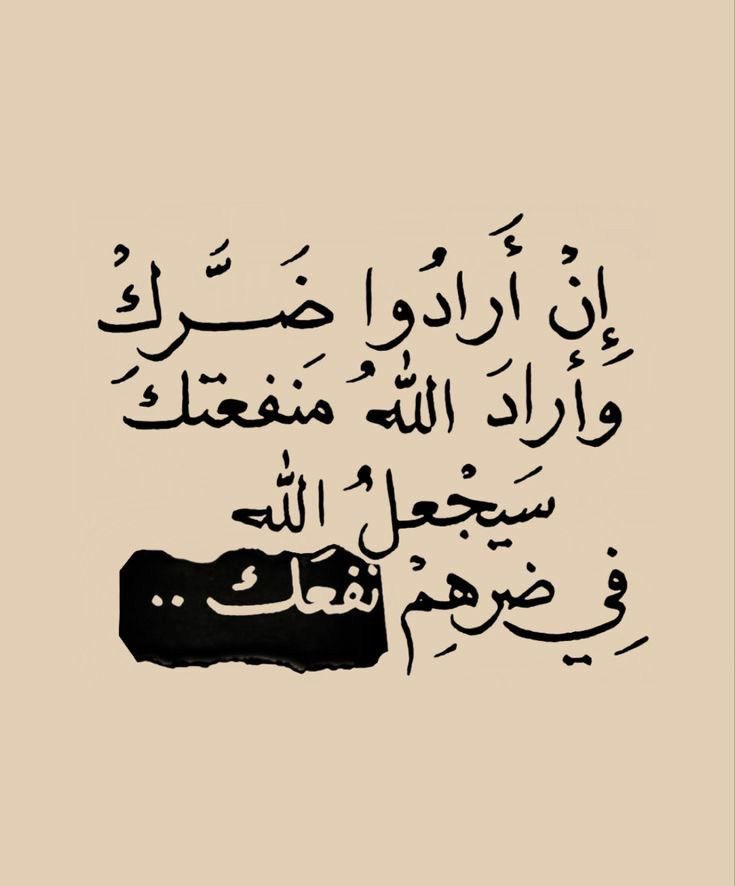 إِنْ أَرادُوا ضَرَّكْ
وَأرادَ اللهُ مَنفعتكَ
سَيجْعلُ الله
فِي ضرهِمْ نفعَك ..